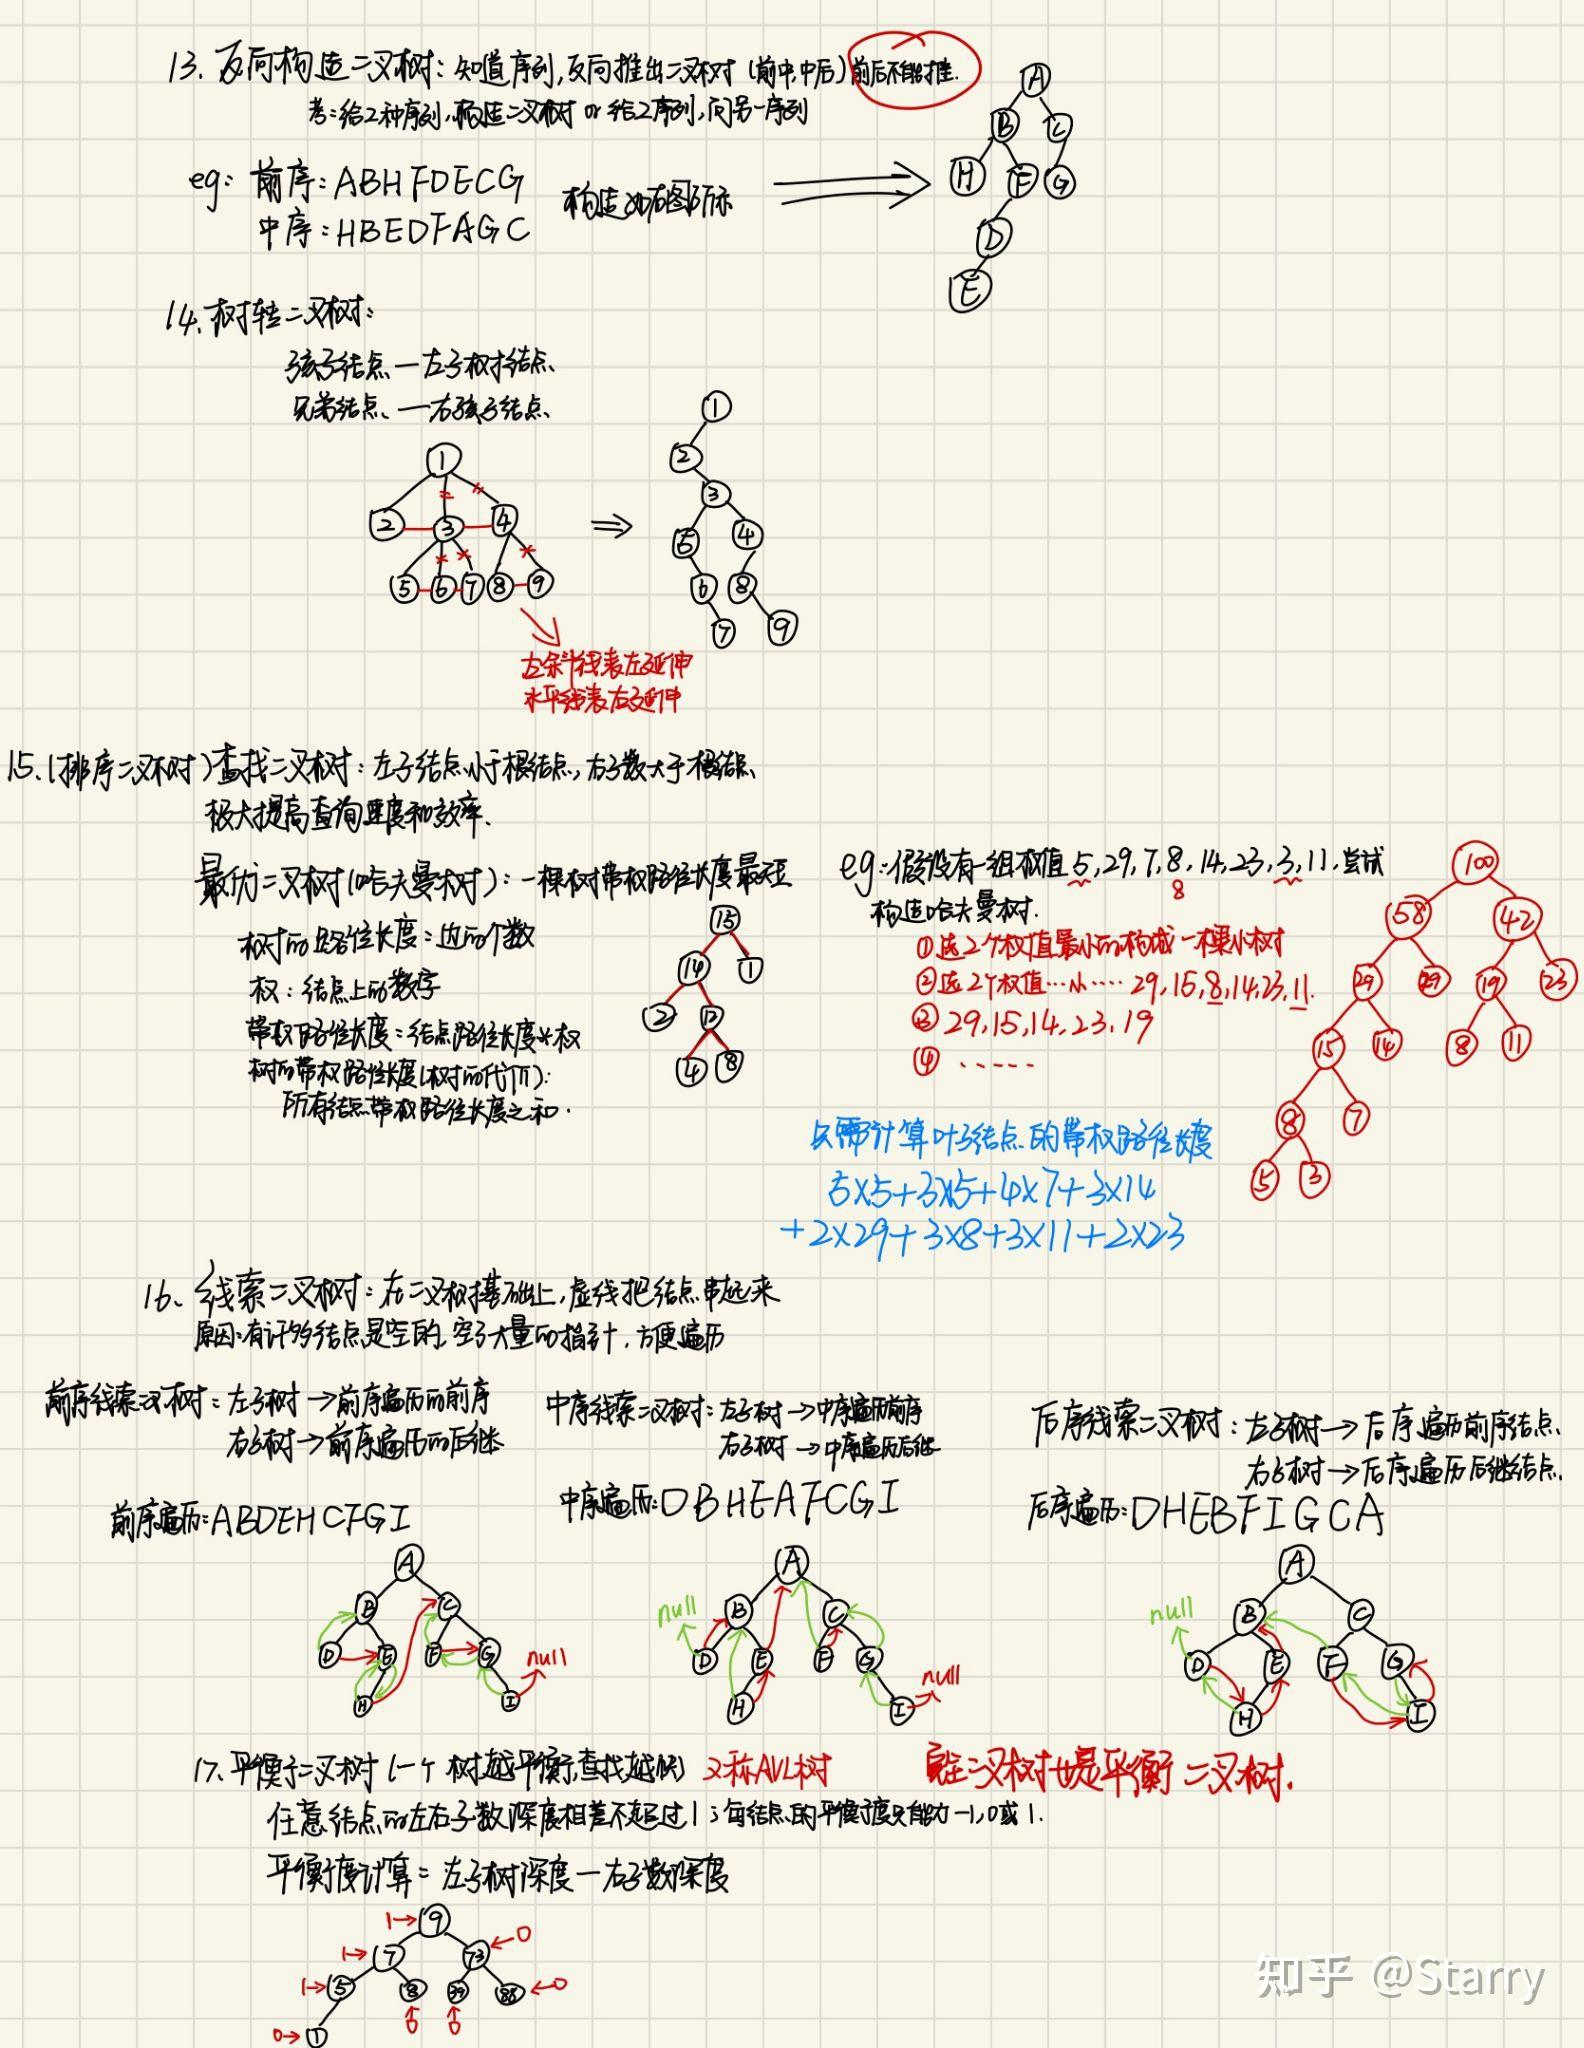 13. 反向构造二叉树：知道序列，反向推出二叉树（前中，中后）前后不能推.
考：给2种序列，构造二叉树 or 给2序列，问另一序列
eg：前序：ABHFDECG
中序：HBEDFAGC
构造如右图所示
A
B C
H F G
D
E
14. 树转二叉树：
孩子结点 — 左子树结点
兄弟结点 — 右孩子结点
1
2 3 4
5 6 7 8 9
1
2
3
5 4
6 8
7 9
左斜线表左延伸
水平线表右延伸
15.（排序二叉树）查找二叉树：左子结点小于根结点，右子数大于根结点
极大提高查询速度和效率.
最优二叉树（哈夫曼树）：一棵树带权路径长度最短
树的路径长度：边的个数
权：结点上的数字
带权路径长度：结点路径长度×权
树的带权路径长度（树的代价）：
所有结点带权路径长度之和.
15
14 1
2 12
4 8
eg：假设有一组权值5,29,7,8,14,23,3,11，尝试
8
构造哈夫曼树.
①选2个权值最小的构成一棵小树
②选2个权值…小…… 29,15,8,14,23,11.
③ 29,15,14,23,19
④ ……
100
58 42
29 29 19 23
15 14 8 11
8 7
5 3
只需计算叶子结点的带权路径长度
5×5+3×5+4×7+3×14
+2×29+3×8+3×11+2×23
16. 线索二叉树：在二叉树基础上，虚线把结点串起来
原因：有许多结点是空的，空了大量的指针，方便遍历
前序线索二叉树：左子树→前序遍历的前序
右子树→前序遍历的后继
前序遍历：ABDEHCFGI
A
B C
D E F G
H I null
中序线索二叉树：左子树→中序遍历前序
右子树→中序遍历后继
中序遍历：DBHEAFCGI
A
null B C
D E F G
H I null
后序线索二叉树：左子树→后序遍历前序结点
右子树→后序遍历后继结点
后序遍历：DHEBFIGCA
A
null B C
D E F G
H I
17. 平衡二叉树（一个树越平衡，查找越快）又称AVL树
完全二叉树也是平衡二叉树.
任意结点的左右子数深度相差不超过1；每结点的平衡度只能为-1,0或1.
平衡度计算=左子树深度—右子数深度
1→ 9
1→ 7 73 ←0
1→ 5 8 39 88 ←0
0→ 1 0 0
知乎 @Starry